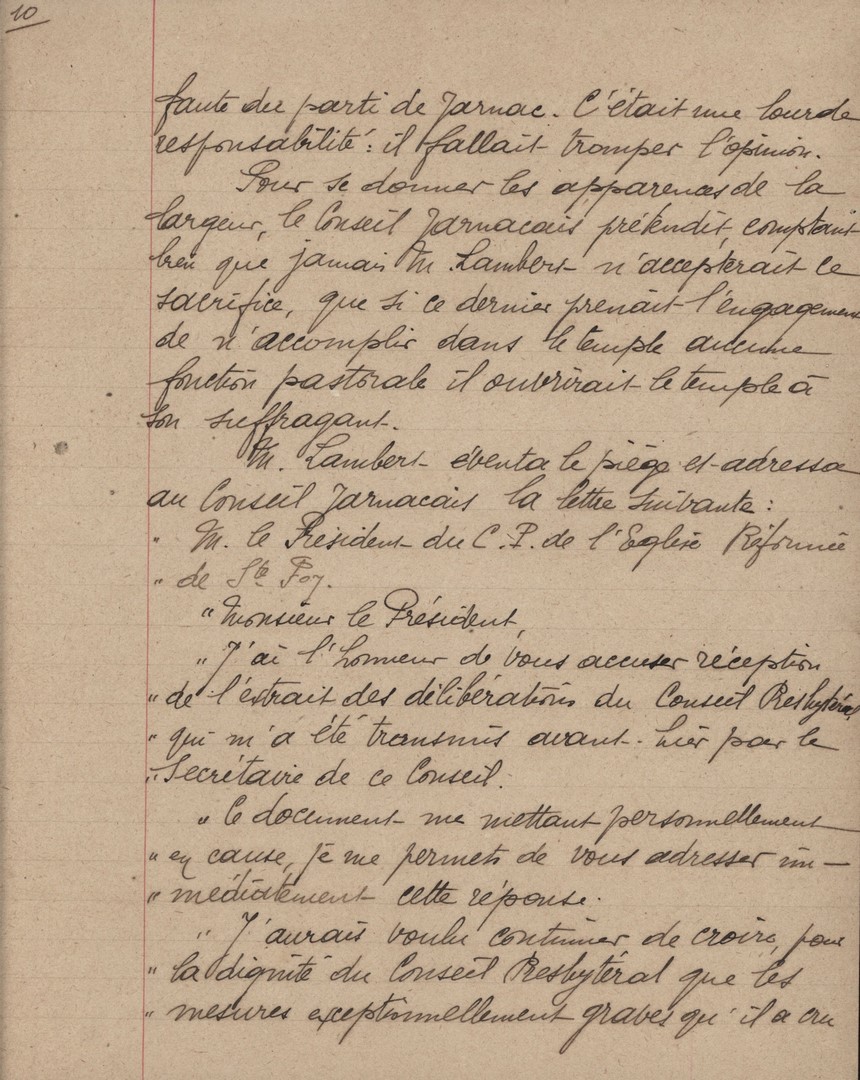 10
faute du parti de Jarnac. C'était une lourde
responsabilité : il fallait tromper l'opinion.
Pour se donner les apparences de la
largeur, le Conseil Jarnacais prétendit, comptant
bien que jamais M. Lambert n'accepterait ce
sacrifice, que si ce dernier prenait l'engagement
de n'accomplir dans le temple aucune
fonction pastorale il ouvrirait le temple à
son suffragant.
M. Lambert éventa le piège et adressa
au Conseil Jarnacais la lettre suivante :
" M. le Président du C.P. de l'Eglise Réformée
" de Ste Foy.
" Monsieur le Président,
" J'ai l'honneur de vous accuser réception
" de l'extrait des délibérations du Conseil Presbytéral
" qui m'a été transmis avant-hier par le
" Secrétaire de ce Conseil.
" Ce document me mettant personnellement
" en cause, je me permets de vous adresser im-
" médiatement cette réponse.
" J'aurais voulu continuer de croire, pour
" la dignité du Conseil Presbytéral que les
" mesures exceptionnellement graves qu'il a cru